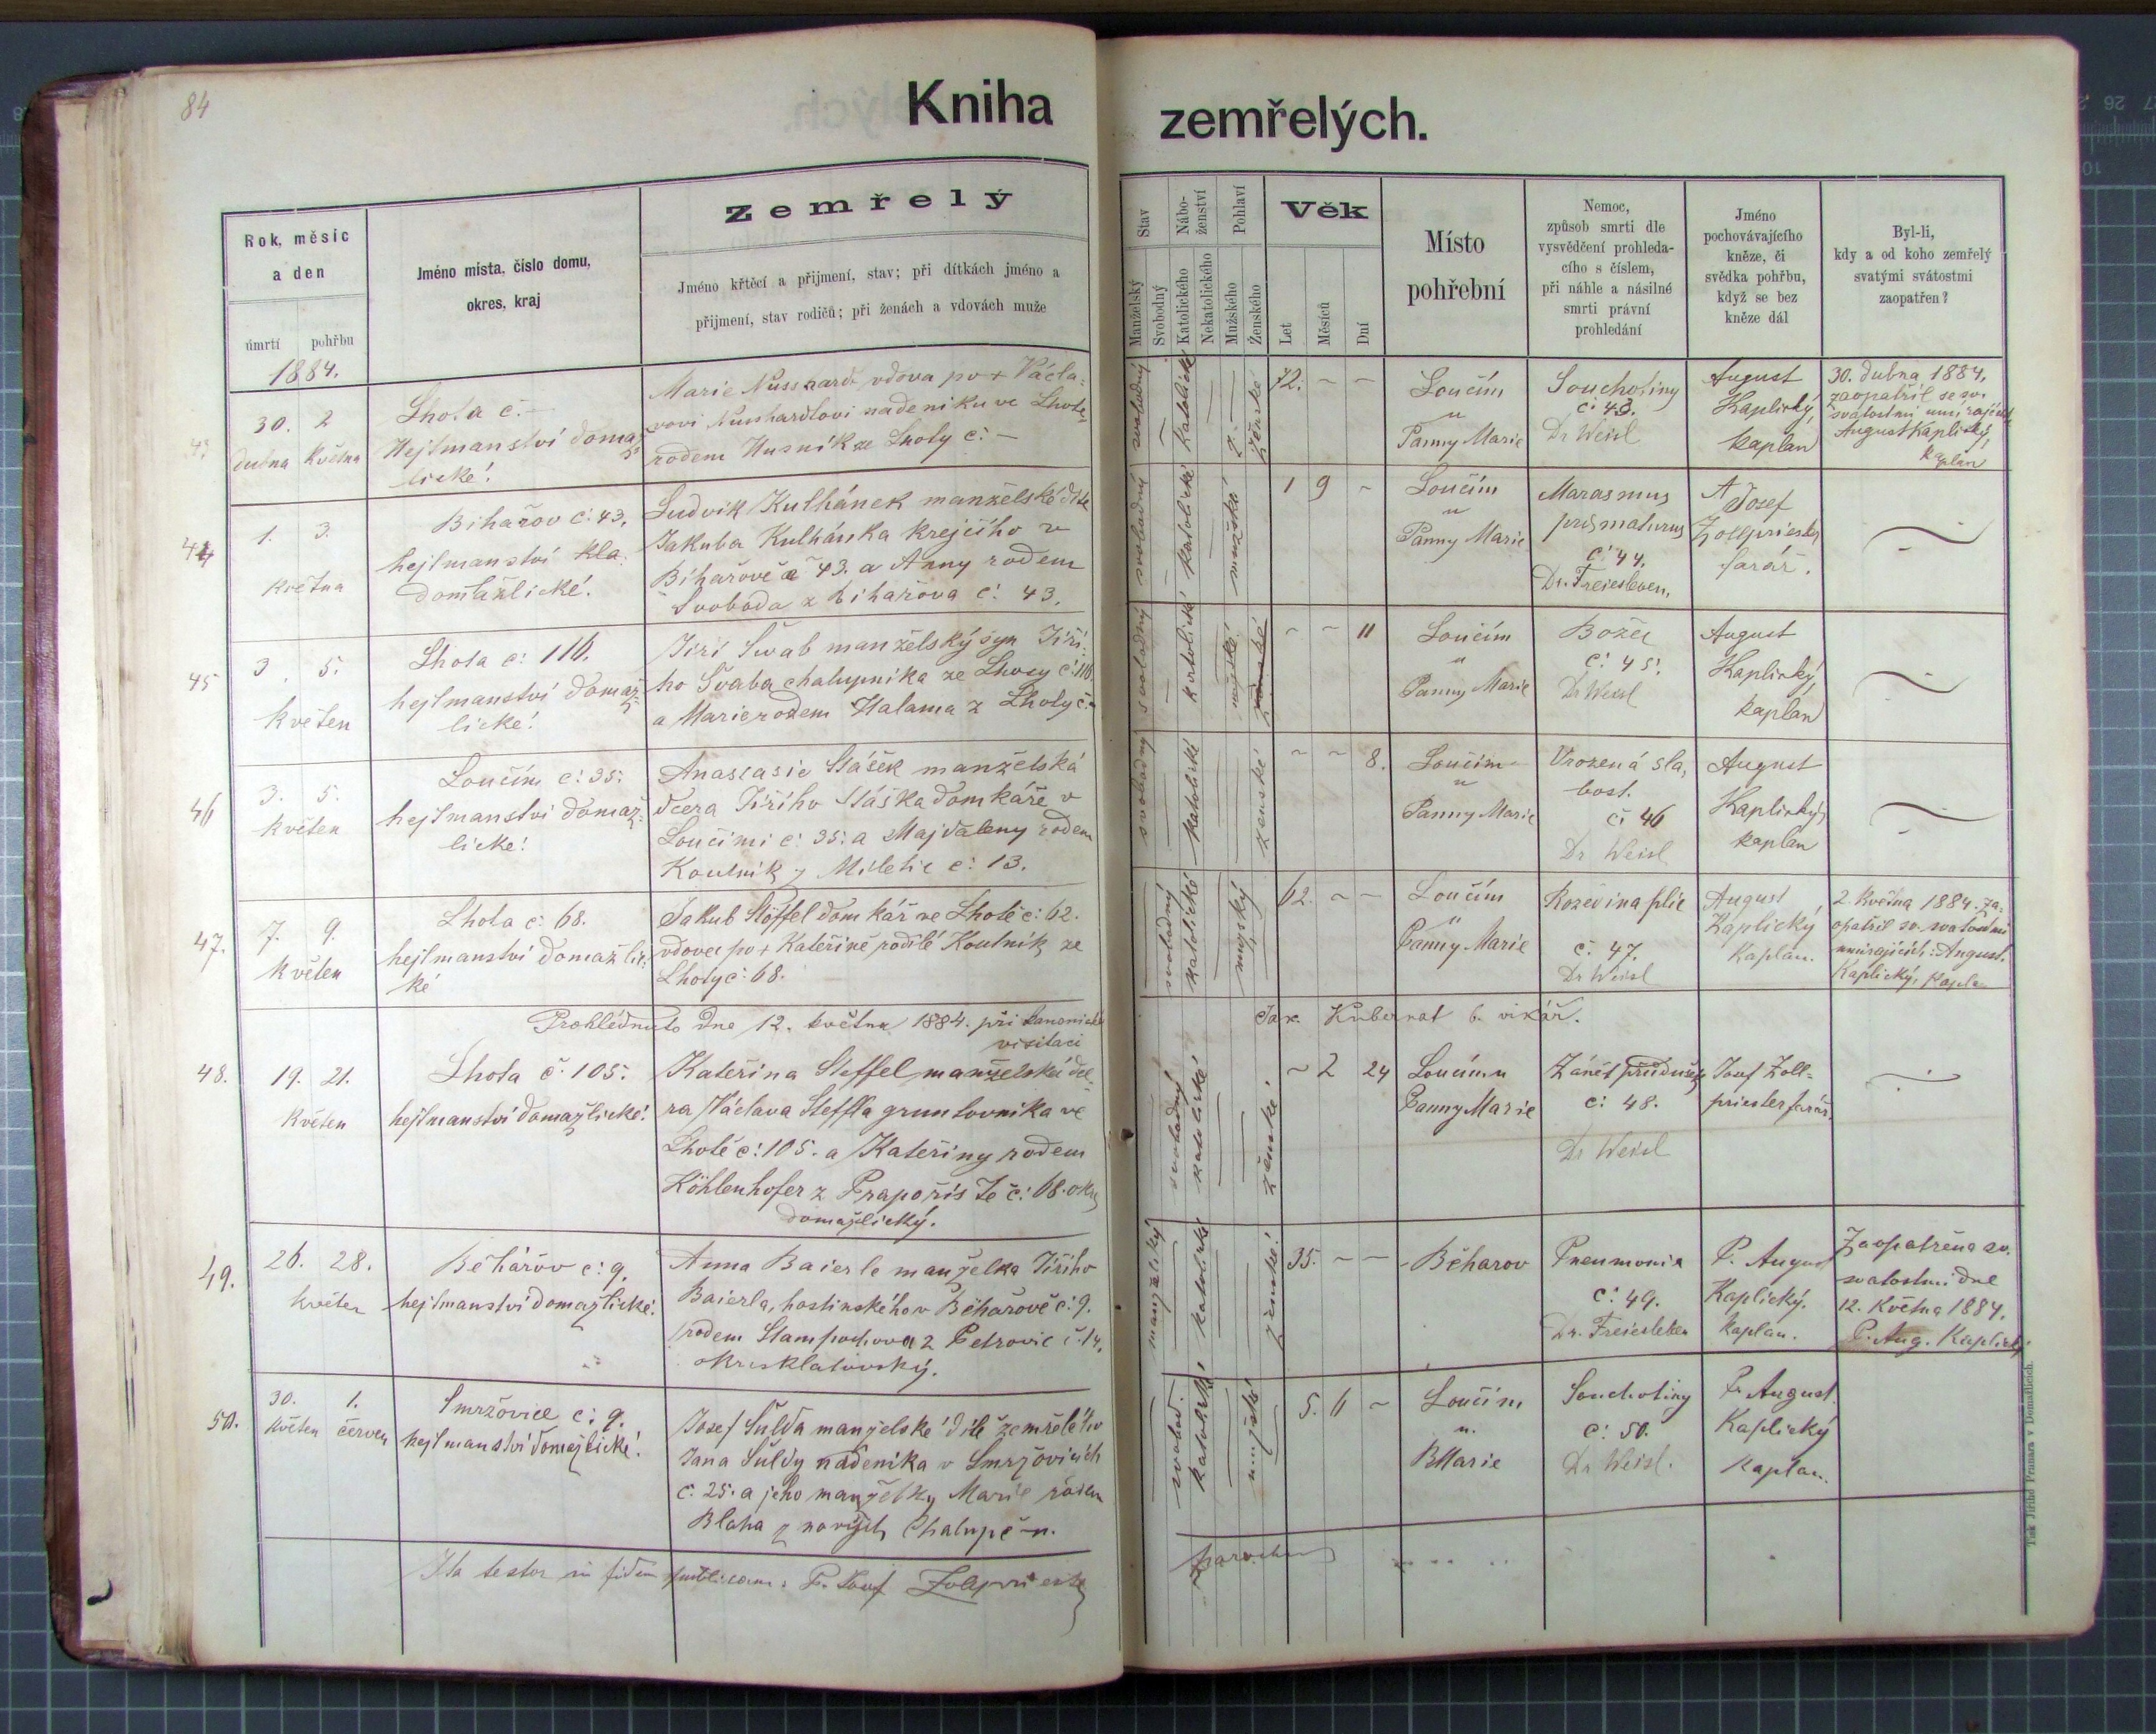 84
Kniha zemřelých.
Rok, měsíc
a den
úmrtí pohřbu
Jméno místa, číslo domu,
okres, kraj
Zemřelý
Jméno křtěcí a přijmení, stav; při dítkách jméno a
přijmení, stav rodičů; při ženách a vdovách muže
Stav
Manželský
Svobodný
Nábo-
ženství
Katolického
Nekatolického
Pohlaví
Mužského
Ženského
Věk
Let
Měsíců
Dní
Místo
pohřební
Nemoc,
způsob smrti dle
vysvědčení prohleda-
cího s číslem,
při náhle a násilné
smrti právní
prohledání
Jméno
pochovávajícího
kněze, či
svědka pohřbu,
když se bez
kněze dál
Byl-li,
kdy a od koho zemřelý
svatými svátostmi
zaopatřen?
1884.
43
30. 2
dubna Května
Lhota č. –
Hejtmanství domaž
lické!
Marie Nusshardt vdova po + Václa-
vovi Nusshardtovi nadeníku ve Lhotě
rodem Husník ze Lhoty č. –
svobodný
katolické
ženské
72. – –
Loučím
u
Panny Marie
Souchotiny
č. 43.
Dr Weisl
August
Kaplický,
kaplan
30. dubna 1884,
zaopatřil se sv.
svatostmi umírajících
August Kaplický,
kaplan
44
1. 3.
května
Bihařov č. 43,
hejtmanství kla.
domažlické!
Ludvik Kulhánek manželské dítě
Jakuba Kulhánka krejčího v
Bihařově č 43. a Anny rodem
Svoboda z Bihařova č. 43.
svobodný
katolické
mužské
1 9 –
Loučím
u
Panny Marie
Marasmus
č. 44.
Dr. Freiesleben,
Josef
Zollpriester
farář.
45
3. 5.
květen
Lhota č: 116.
hejtmanství domaž-
lické!
Jiří Švab manželský syn Jiří-
ho Švaba chalupníka ze Lhoty č. 116.
a Marie rodem Halama z Lhoty č. –
svobodný
katolické
mužské
ženské
– – 11
Loučím
u
Panny Marie
Božec
č: 45.
Dr Weisl
August
Kaplický,
kaplan
46
3. 5.
květen
Loučím č: 35:
hejtmanství domaž-
lické!
Anastasie Stášek manželská
dcera Jiřího Stáška domkáře v
Loučimi č: 35: a Majdaleny rodem
Koutník z Miletic č: 13.
svobodný
katolické
ženské
– – 8.
Loučím
u
Panny Marie
Vrozená sla,
bost.
č. 46
Dr Weisl
August
Kaplický,
kaplan
47.
7. 9.
květen
Lhota č: 68.
hejtmanství domažlic-
ké
Jakub Stöffel domkář ve Lhotě č: 62.
vdovec po + Kateřině rodilé Koutník ze
Lhoty č: 68.
svobodný
katolické
mužský
62. – –
Loučím
u
Panny Marie
Rozedina plic
č. 47.
Dr Weisl
August
Kaplický
Kaplan.
2. Května 1884. za-
opatřil sv. svatostmi
umírajících: August.
Kaplický, Kaplan
Prohlédnuto dne 12. května 1884. při kanonické
visitaci
Jar. Kubernat b. vikář.
48.
19. 21.
květen
Lhota č. 105.
hejtmanství domažlické!
Kateřina Steffel manželská dce-
ra Václava Steffla gruntovníka ve
Lhotě č: 105. a Kateřiny rodem
Köhlenhofer z Prapořiště č: 68. okres
domažlický.
svobodný
katolické
ženské
– 2 24
Loučím u
Panny Marie
Zánět průdušek
č: 48.
Dr Weisl
Josef Zoll-
priester farář.
49.
26. 28.
květen
Běhařov č: 9.
hejtmanství domažlické!
Anna Baierle manželka Jiřího
Baierla, hostinského v Běhařově č: 9.
rodem Stampachova z Petrovic č. 14,
okres klatovský.
manželský
katolické
ženské
35. – –
Běharov
Pneumonia
č: 49.
Dr. Freiesleben
P. August
Kaplický.
kaplan.
Zaopatřena sv.
svatostmi dne
12. Května 1884.
P. Aug. Kaplický
50.
30. 1.
květen červen
Smržovice č: 9.
hejtmanství domažlické!
Josef Šulda manželské dítě zemřelého
Jana Šuldy nadenika v Smržovicích
č. 25. a jeho manželky Marie rodem
Blaha z nových Chalup č – n.
svobod.
katolické
mužské
5. 6 –
Loučím
u.
P. Marie
Souchotiny
č: 50.
Dr Weisl.
P. August
Kaplický
kaplan.
Ita testor in fidem publicam: P. Josef Zollpriester
parochus
Tisk Jiřího Prunara v Domažlicích.